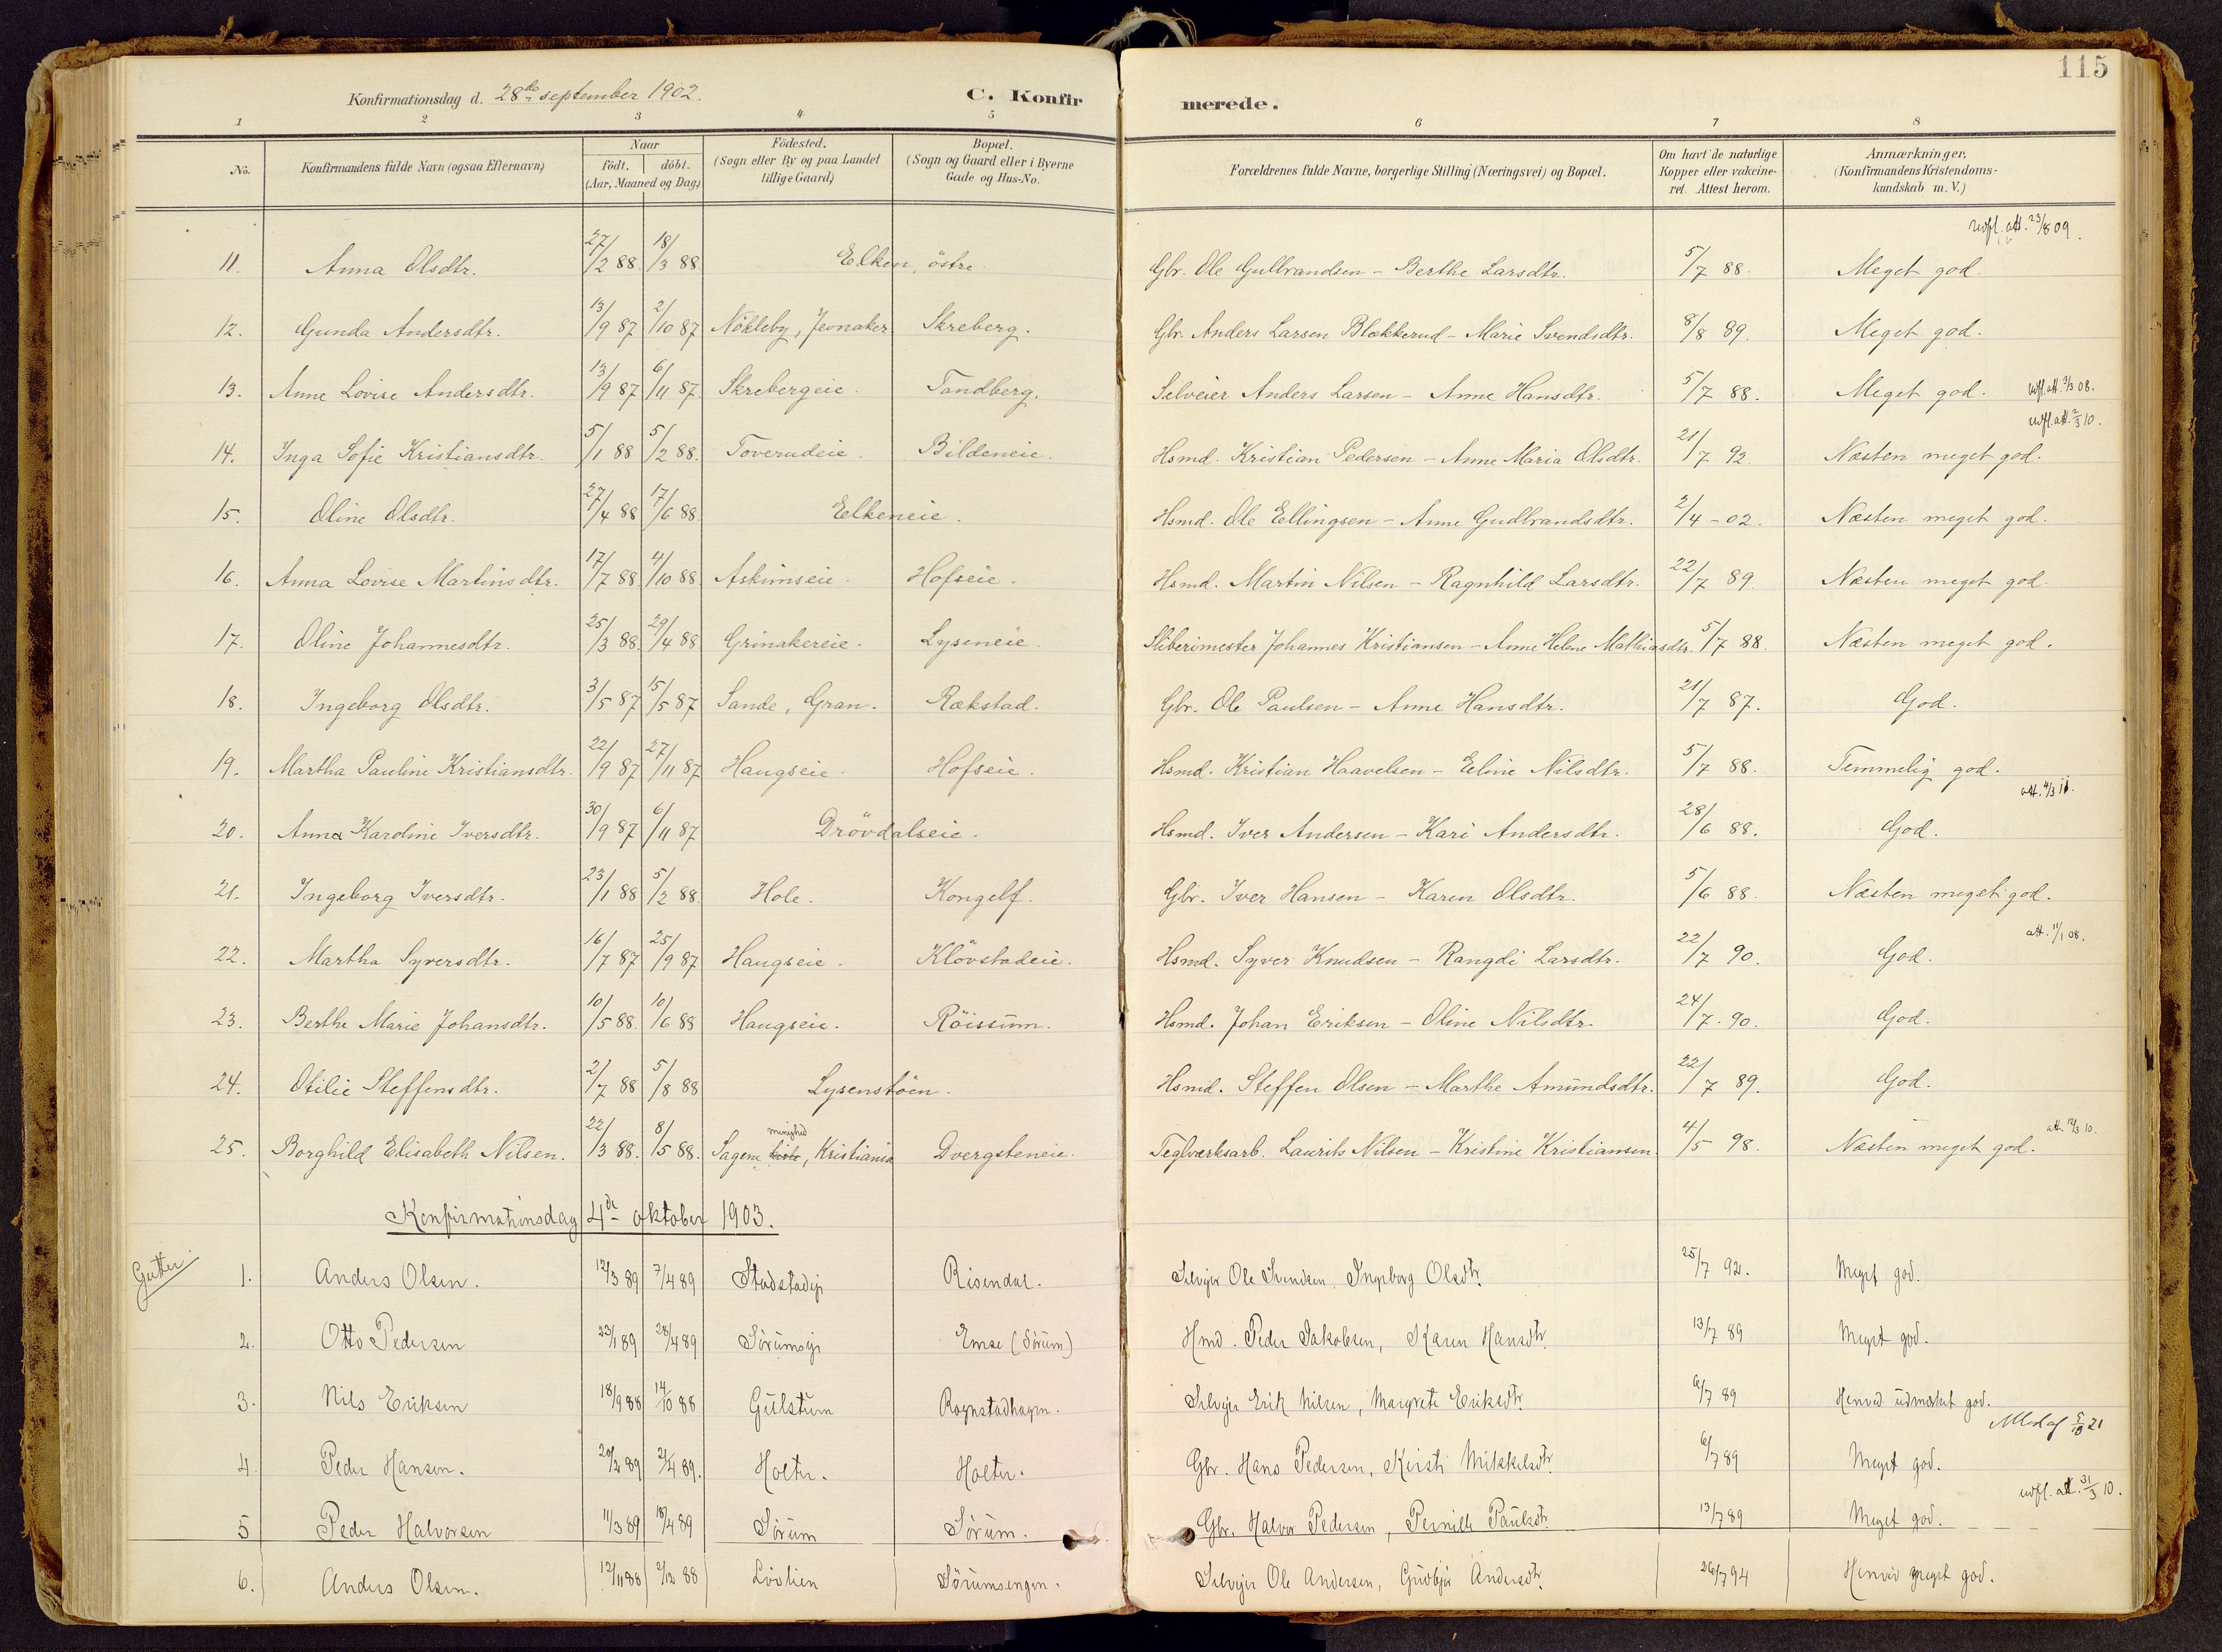 115
Konfirmationsdag d. 28de september 1902. C. Konfirmerede.
1 2 3 4 5 6 7 8
No. Konfirmandens fulde Navn (ogsaa Efternavn) Naar födt. döbt. (Aar, Maaned og Dag.) Födested. (Sogn eller By og paa Landet tillige Gaard.) Bopæl. (Sogn og Gaard eller i Byerne Gade og Hus-No. Forældrenes fulde Navne, borgerlige Stilling (Næringsvei) og Bopæl. Om havt de naturlige Kopper eller vakcineret. Attest herom. Anmærkninger. (Konfirmandens Kristendomskundskab m. V.)
udfl. att. 23/8 09.
11. Anna Olsdtr. 27/2 88 18/3 88 Elken, östre. Gbr. Ole Gulbrandsen - Berthe Larsdtr. 5/7 88. Meget god.
12. Gunda Andersdtr. 13/9 87 2/10 87 Nökleby, Jevnaker Skreberg. Gbr. Anders Larsen Blækkerud - Marie Svendsdtr. 8/8 89. Meget god.
13. Anne Lovise Andersdtr. 13/9 87 6/11 87. Skrebergeie. Tandberg. Selveier Anders Larsen - Anne Hansdtr. 5/7 88. Meget god. udfl. att. 3/3 08.
udfl. att. 2/3 10.
14. Inga Sofie Kristiansdtr. 5/1 88 5/2 88. Toverudeie. Bildeneie. Hsmd. Kristian Pedersen - Anne Maria Olsdtr. 21/7 92. Næsten meget god.
15. Oline Olsdtr. 27/4 88 17/6 88. Elkeneie. Hsmd. Ole Ellingsen - Anne Gudbrandsdtr. 2/4 - 02. Næsten meget god.
16. Anna Lovise Martinsdtr. 17/7 88. 4/10 88 Askimseie. Hofseie. Hsmd. Martin Nilsen - Ragnhild Larsdtr. 22/7 89. Næsten meget god.
17. Oline Johannesdtr. 25/3 88. 29/4 88 Grinakereie. Lyseneie. Sliberimester Johannes Kristiansen - Anne Helene Mathiasdtr. 5/7 88. Næsten meget god.
18. Ingeborg Olsdtr. 3/5 87 15/5 87 Sande, Gran. Rækstad. Gbr. Ole Paulsen - Anne Hansdtr. 21/7 87. God.
19. Martha Pauline Kristiansdtr. 22/9 87 27/11 87 Haugseie. Hofseie. Hsmd. Kristian Haavelsen - Eline Nilsdtr. 5/7 88. Temmelig god.
att. 4/3 11.
20. Anna Karoline Iversdtr. 30/9 87 6/11 87 Drövdalseie. Hsmd. Iver Andersen - Kari Andersdtr. 28/6 88. God.
21. Ingeborg Iversdtr. 23/1 88 5/2 88. Hole. Kongelf. Gbr. Iver Hansen - Karen Olsdtr. 5/6 88. Næsten meget god.
att. 11/1 08.
22. Martha Syversdtr. 16/7 87 25/9 87 Haugseie. Klövstadeie. Hsmd. Syver Knudsen - Rangdi Larsdtr. 22/7 90. God.
23. Berthe Marie Johansdtr. 10/5 88. 10/6 88 Haugseie. Röissum. Hsmd. Johan Eriksen - Oline Nilsdtr. 24/7. 90. God.
24. Otilie Steffensdtr. 2/7 88 5/8 88 Lysenstöen. Hsmd. Steffen Olsen - Marthe Amundsdtr. 22/7 89. God.
menighed att. 12/3 10.
25. Borghild Elisabeth Nilsen. 22/3 88. 8/5 88. Sagene kirke, Kristiania Dvergsteneie. Teglværksarb. Laurits Nilsen - Kristine Kristiansen. 4/5 98. Næsten meget god.
Konfirmationsdag 4de oktober 1903.
Gutter
1. Anders Olsen. 12/3 89 7/4 89 Stadstadeje Risendal. Selvejer Ole Svendsen, Ingeborg Olsdtr. 25/7 92. Meget god.
2. Otto Pedersen 23/1 89 28/4 89 Sörumseje Emse (Sörum) Hmd. Peder Jakobsen, Karen Hansdtr. 13/7 89 Meget god.
3. Nils Eriksen 18/9 88 14/10 88 Gulstuen Rognstadhagen. Selvejer Erik Nilsen, Margrete Eriksdtr. 6/7 89 Henved udmærket god.
5/10 21
4. Peder Hansen. 20/2 89 21/4 89. Holter. Holter. Gbr. Hans Pedersen, Kirsti Mikkelsdtr. 6/7 89 Meget god.
udfl. att. 31/3 10.
5 Peder Halvorsen 11/3 89 18/4 89 Sörum Sörum. Gbr. Halvor Pedersen, Pernille Paulsdtr. 13/7 89 Meget god.
6. Anders Olsen. 12/11 88 2/12 88 Lövlien Sörumsengen. Selvejer Ole Andersen, Gudbjör Andersdtr. 26/7 94 Henved meget god.